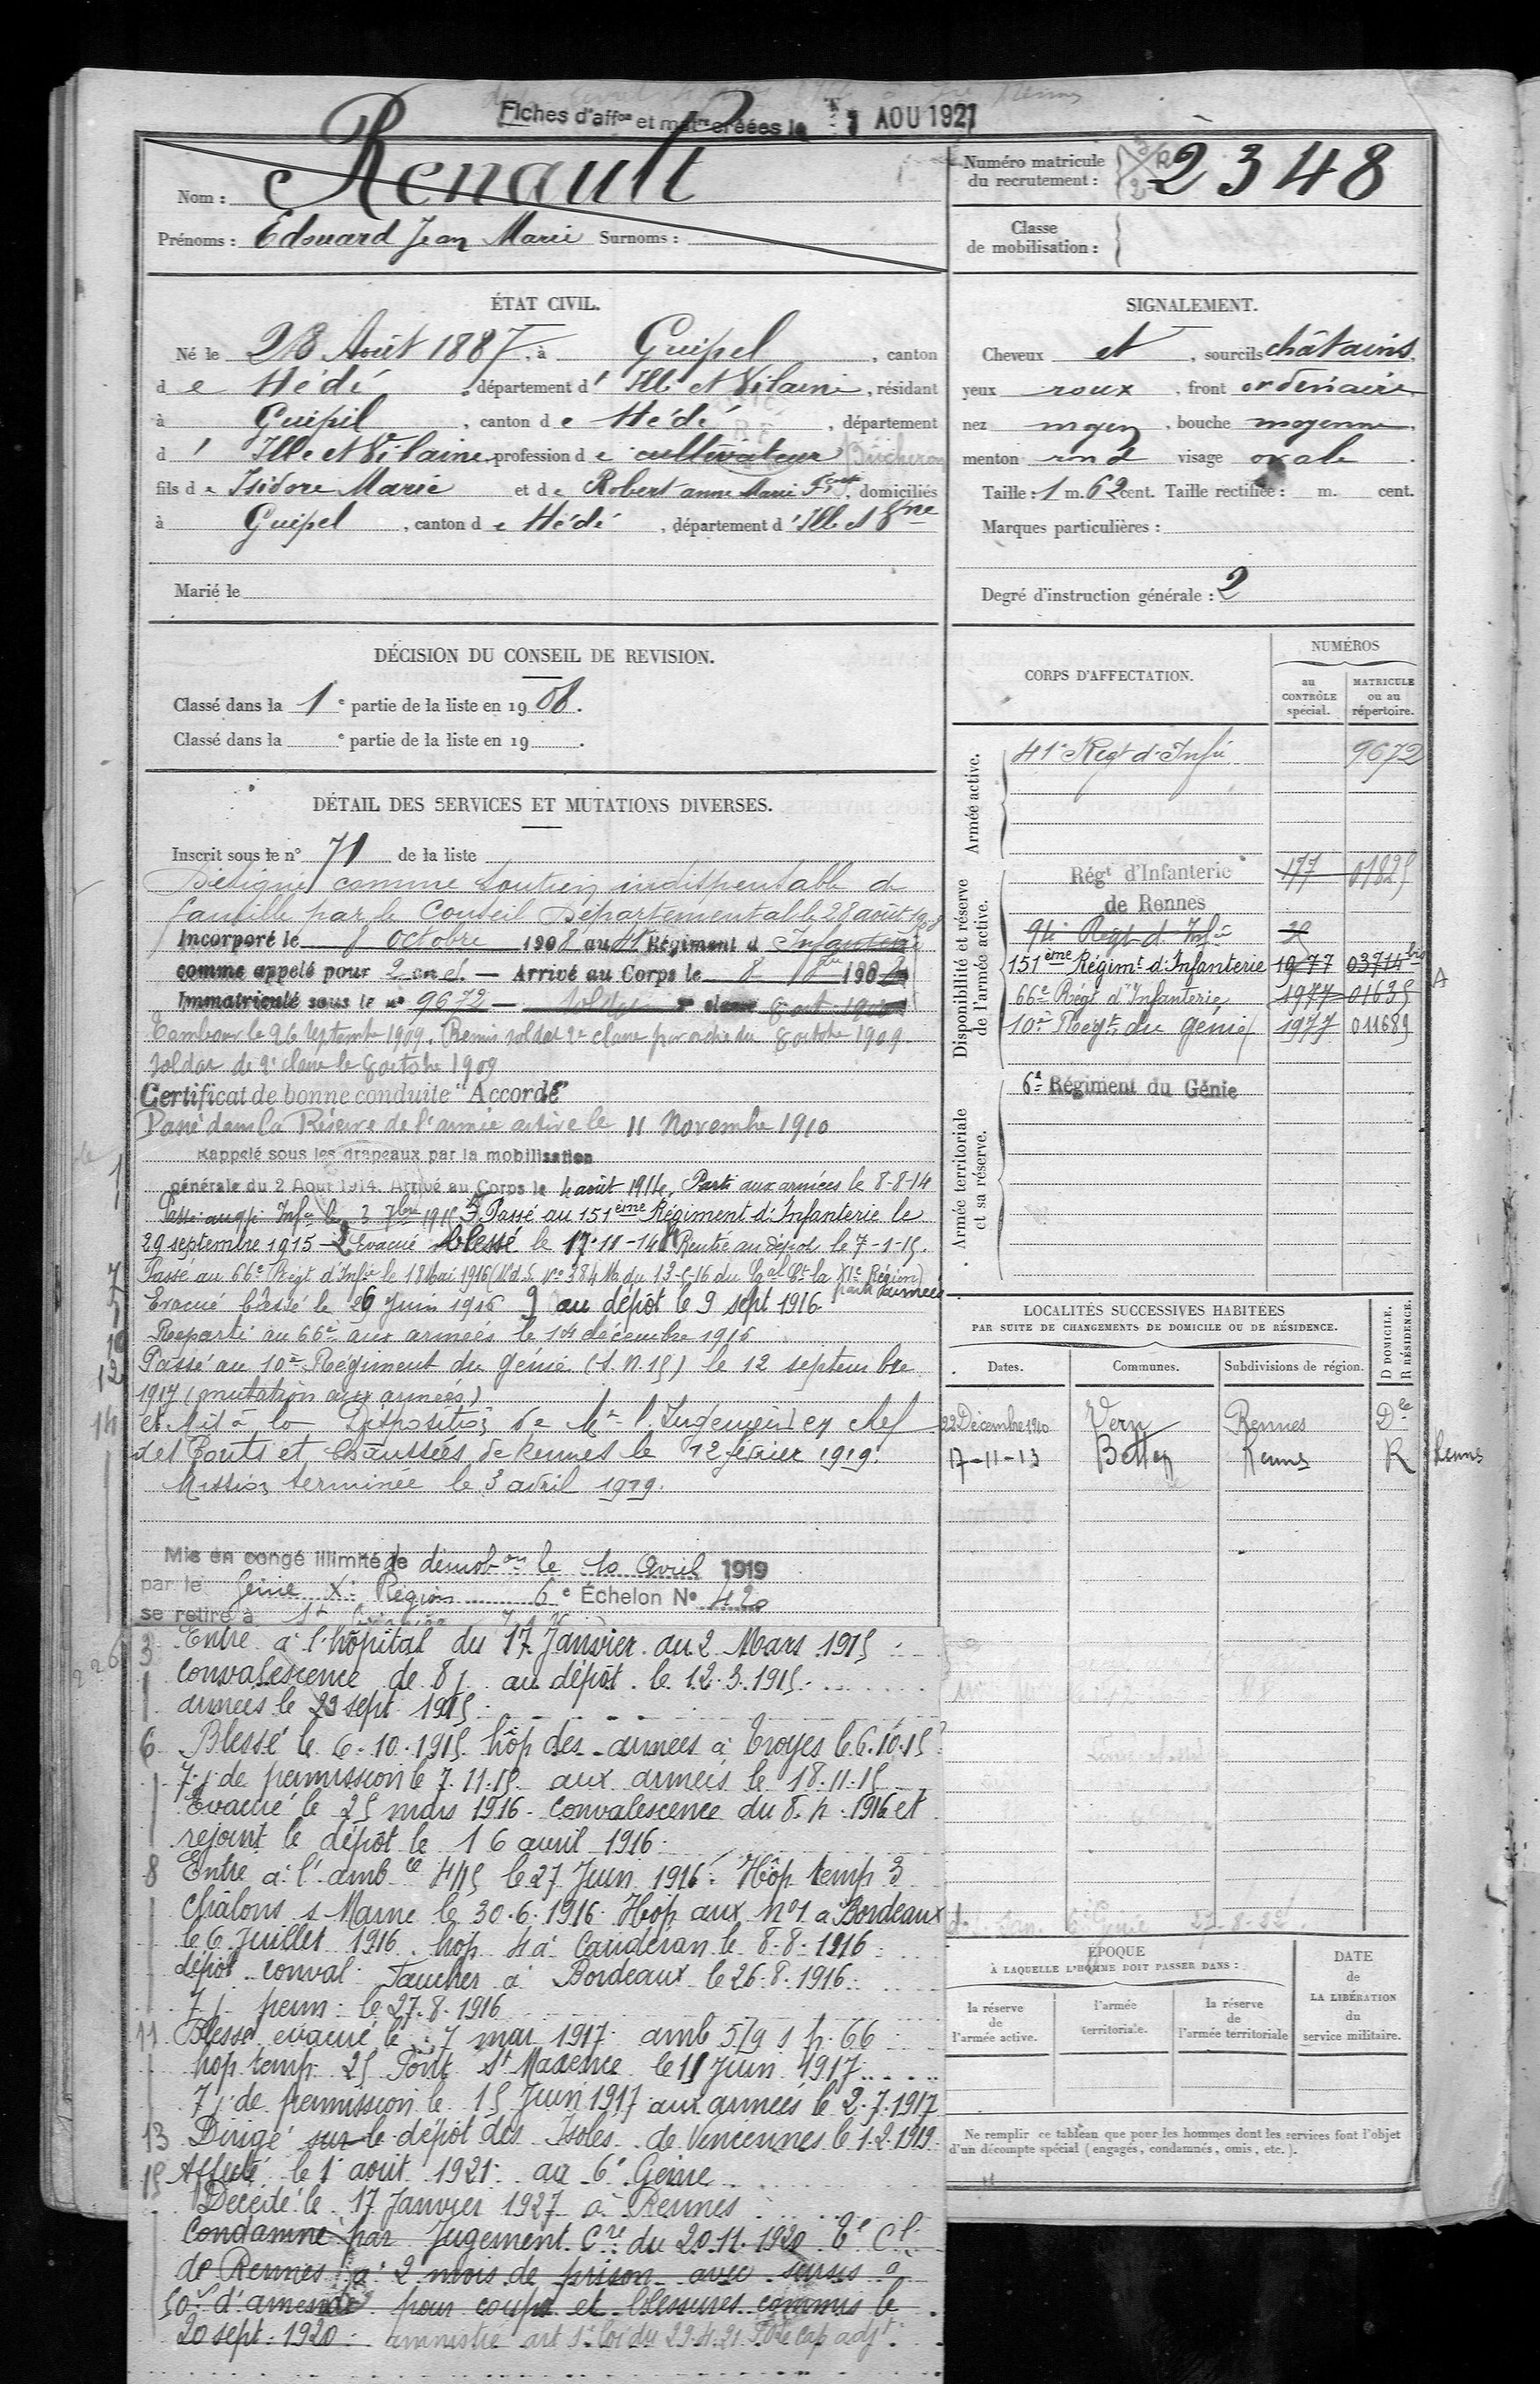 Fiches d'aff^on et mat^re créées le 1 AOU 1921
Nom : Renault
Prénoms : Edouard Jean Marie Surnoms :
Numéro matricule du recrutement : 2348
Classe de mobilisation :
ÉTAT CIVIL.
Né le 28 Août 1887, à Guipel, canton
de Hédé, département d'Ille et Vilaine, résidant
à Guipel, canton de Hédé, département
d'Ille et Vilaine, profession de cultivateur Bûcheron
fils de Isidore Marie et de Robert anne Marie, domiciliés
à Guipel, canton de Hédé, département d'Ille et Vne
Marié le
SIGNALEMENT.
Cheveux et, sourcils châtains,
yeux roux, front ordinaire
nez moyen, bouche moyenne,
menton rond visage ovale.
Taille : 1 m. 62 cent. Taille rectifiée : m. cent.
Marques particulières :
Degré d'instruction générale : 2
DÉCISION DU CONSEIL DE REVISION.
Classé dans la 1e partie de la liste en 1908.
Classé dans la e partie de la liste en 19 .
DÉTAIL DES SERVICES ET MUTATIONS DIVERSES.
Inscrit sous le n° 71 de la liste
Désigné comme soutien indispensable de
famille par le Conseil Départemental le 28 août 1908
Incorporé le 8 octobre 1908 au 41e Régiment d'Infanterie
comme appelé pour 2 ans. — Arrivé au Corps le 8 8bre 1908
Immatriculé sous le n° 9672 — soldat 2e classe 8 oct 1908
Tambour le 26 septembre 1909. Remis soldat 2e classe 8 octobre 1909
soldat de 2e classe le 8 octobre 1909
Certificat de bonne conduite "Accordé"
Passé dans la Réserve de l'armée active le 11 Novembre 1910
Rappelé sous les drapeaux par la mobilisation
générale du 2 Août 1914. Arrivé au Corps le 4 août 1914. Parti aux armées le 8-8-14
Passé au 94e Infie le 3 7bre 1915 5 Passé au 151ème Régiment d'Infanterie le
29 septembre 1915 — 2 Evacué blessé le 17-11-14 4 Rentré au dépôt le 7-1-15.
Passé au 66e Régt d'Infie le 18 Mai 1916 (N.d.S. N° 384 du 13-5-16 du Gal Ct la XIe Région) parti armées
Evacué blessé le 26 Juin 1916 9 au dépôt le 9 sept 1916
Reparti au 66e aux armées le 14 décembre 1916
Passé au 10e Régiment du Génie (S.N.15) le 12 septembre
1917 (mutation aux armées)
et Mis à la Disposition de Mr l'Ingénieur en chef
des Ponts et Chaussées de Rennes le 12 février 1919.
Mission terminée le 3 avril 1919.
Mis en congé illimité de démobon le 10 Avril 1919
par le Génie Xe Région 6e Échelon N° 420
se retire à St
3 Entré à l'hôpital du 17 Janvier au 2 Mars 1915
convalescence de 8 j. au dépôt le 12.3.1915.
armées le 29 sept 1915
6 Blessé le 6.10.1915 hôp des armées à Troyes le 6.10.15
7 j de permission le 7.11.15 aux armées le 18.11.15
Evacué le 25 mars 1916 - convalescence du 8.4.1916 et
rejoint le dépôt le 16 avril 1916.
8 Entré à l'ambce 4/15 le 27 Juin 1916. Hôp temp 3
Châlons s Marne le 30.6.1916 Hôp aux n°1 à Bordeaux
le 6 Juillet 1916. hop 4 à Caudéran le 8.8.1916
dépôt conval Faucher à Bordeaux le 26.8.1916.
7 j perm : le 27.8.1916
11 Blessé évacué le 7 mai 1917 amb 5/9 s p. 66
hop temp 25 Pont St Maxence le 11 Juin 1917
7 j. de permission le 15 Juin 1917 aux armées le 2.7.1917
13 Dirigé sur le dépôt des Isolés de Vincennes le 1.2.1919.
15 Affecté le 1er août 1921 au 6e Génie
Décédé le 17 Janvier 1927 à Rennes
Condamné par Jugement Cre du 20.11.1920 Tal Cl
de Rennes à 2 mois de prison avec sursis à
50f d'amende pour coups et blessures commis le
20 sept. 1920. amnistié art 1er loi du 29.4.21 P.O. le cap adjt
1
7
10
12
14
CORPS D'AFFECTATION.
NUMÉROS
au CONTRÔLE spécial.
MATRICULE ou au répertoire.
Armée active.
41e Régt d'Infie 9672
Disponibilité et réserve de l'armée active.
Régt d'Infanterie 177 01825
de Rennes
94e Régt d'Infie
151ème Régimt d'Infanterie 1977 03714 bis
66e Régt d'Infanterie 1977 01635
10e Régt du génie 1977 011689
A
Armée territoriale et sa réserve.
6e Régiment du Génie
LOCALITÉS SUCCESSIVES HABITÉES
PAR SUITE DE CHANGEMENTS DE DOMICILE OU DE RÉSIDENCE.
Dates. Communes. Subdivisions de région. D DOMICILE. R RÉSIDENCE.
22 Décembre 1910 Vern Rennes De
17-11-13 Betton Rennes R Rennes
Génie 27-8-22
ÉPOQUE
À LAQUELLE L'HOMME DOIT PASSER DANS :
la réserve de l'armée active.
l'armée territoriale.
la réserve de l'armée territoriale
DATE de LA LIBÉRATION du service militaire.
Ne remplir ce tableau que pour les hommes dont les services font l'objet
d'un décompte spécial (engagés, condamnés, omis, etc.).